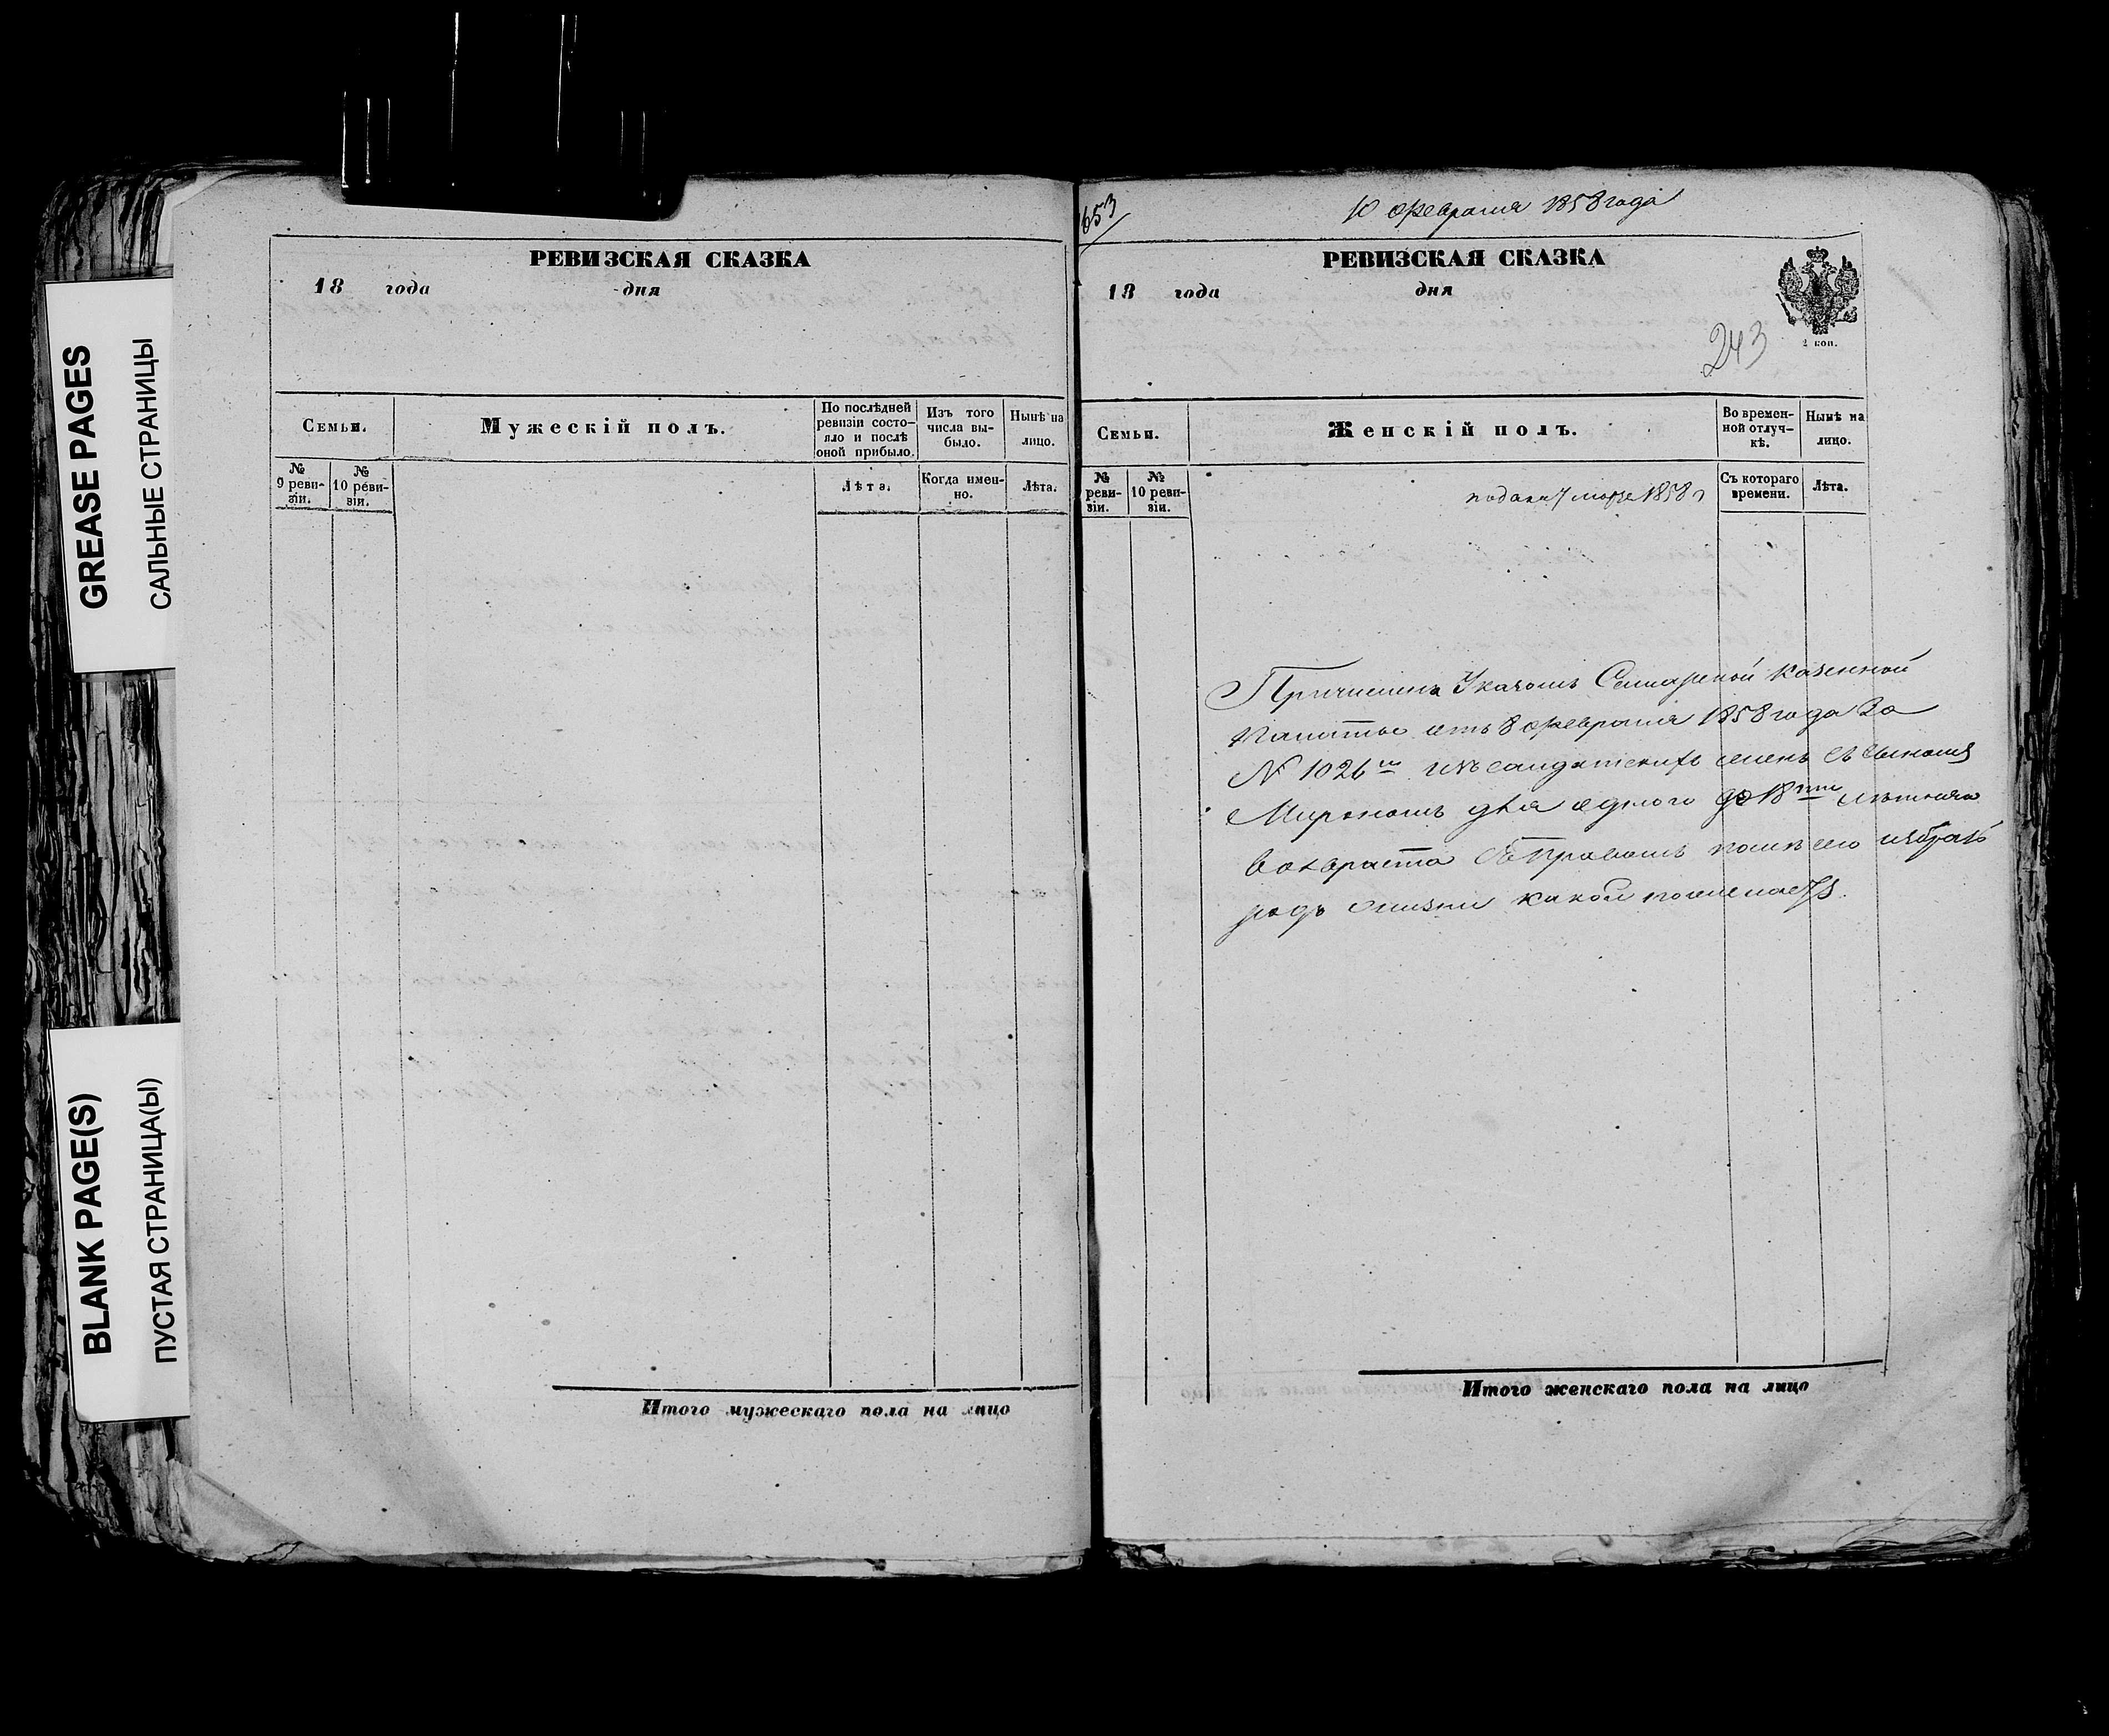 GREASE PAGES
САЛЬНЫЕ СТРАНИЦЫ
BLANK PAGE(S)
ПУСТАЯ СТРАНИЦА(Ы)
РЕВИЗСКАЯ СКАЗКА
18 года дня
Семьи.
Мужескій полъ.
По послѣдней ревизіи состо-
яло и послѣ
оной прибыло.
Изъ того
числа вы-
было.
Нынѣ на
лицо.
№
9 реви-
зіи.
№
10 реви-
зіи.
Лѣта.
Когда имен-
но.
Лѣта.
Итого мужескаго пола на лицо
653
10 февраля 1858 года
РЕВИЗСКАЯ СКАЗКА
18 года дня
243
Семьи.
Женскій полъ.
Во времен-
ной отлуч-
кѣ.
Нынѣ на
лицо.
№
реви-
зіи.
№
10 реви-
зіи.
подана 7 марта 1858 г
Съ котораго
времени.
Лѣта.
Причислена Указомъ Самарской казенной
Палаты отъ 8 февраля 1858 года За
№ 1026 изъ солдатскихъ женъ съ сыномъ
Мирономъ для одного до 18 лѣтняго
возраста съ правомъ послѣ его избрать
родъ жизни какой пожелаетъ.
Итого женскаго пола на лицо